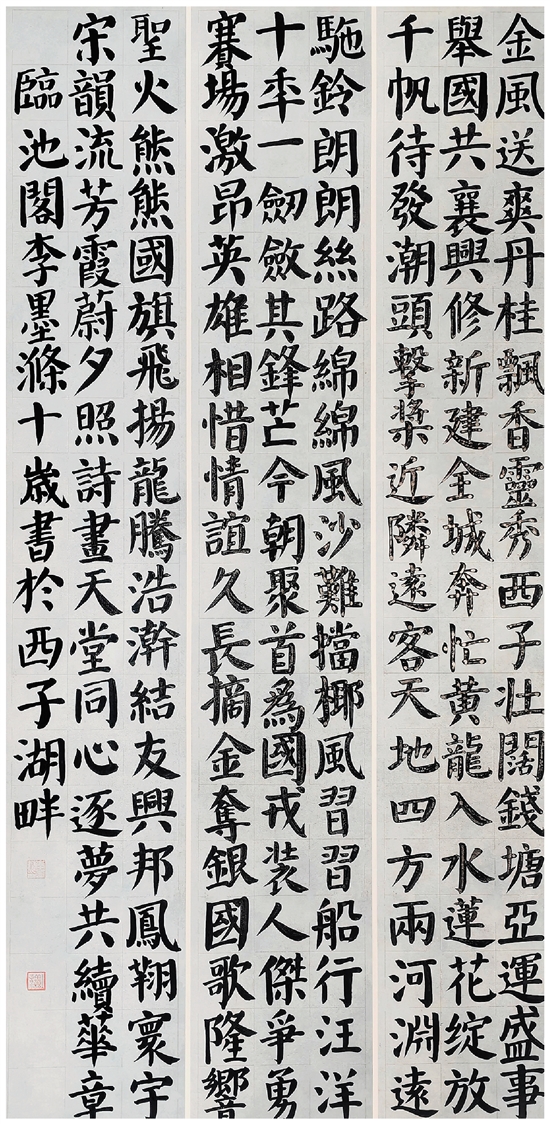 金風送爽丹桂飄香靈秀西子壯闊錢塘亞運盛事
舉國共襄興修新建全城奔忙黃龍入水蓮花綻放
千帆待發潮頭擊槳近隣遠客天地四方兩河淵遠
駞鈴朗朗絲路綿綿風沙難擋椰風習習船行汪洋
十年一劒斂其鋒芒今朝聚首爲國戎装人傑爭勇
賽場激昂英雄相惜情誼久長摘金奪銀國歌隆響
聖火熊熊國旗飛揚龍騰浩瀚結友興邦鳳翔寰宇
宋韻流芳霞蔚夕照詩畫天堂同心逐夢共續華章
臨池閣李墨滌十歲書於西子湖畔